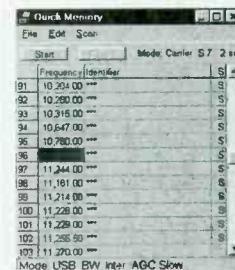 Quick Memory
File Edit Scan
Start Mode: Carrier S 7 2 se
Frequency Identifier S
91 10,204.00 ***
92 10,280.00 *** S
93 10,315.00 *** S
94 10,647.00 *** S
95 10,780.00 *** S
96
97 11,244.00 *** S
98 11,181.00 *** S
99 11,214.00 *** S
100 11,226.00 *** S
101 11,229.00 *** S
102 ***
103 11,270.00 ***
Mode USB BW Inter AGC Slow